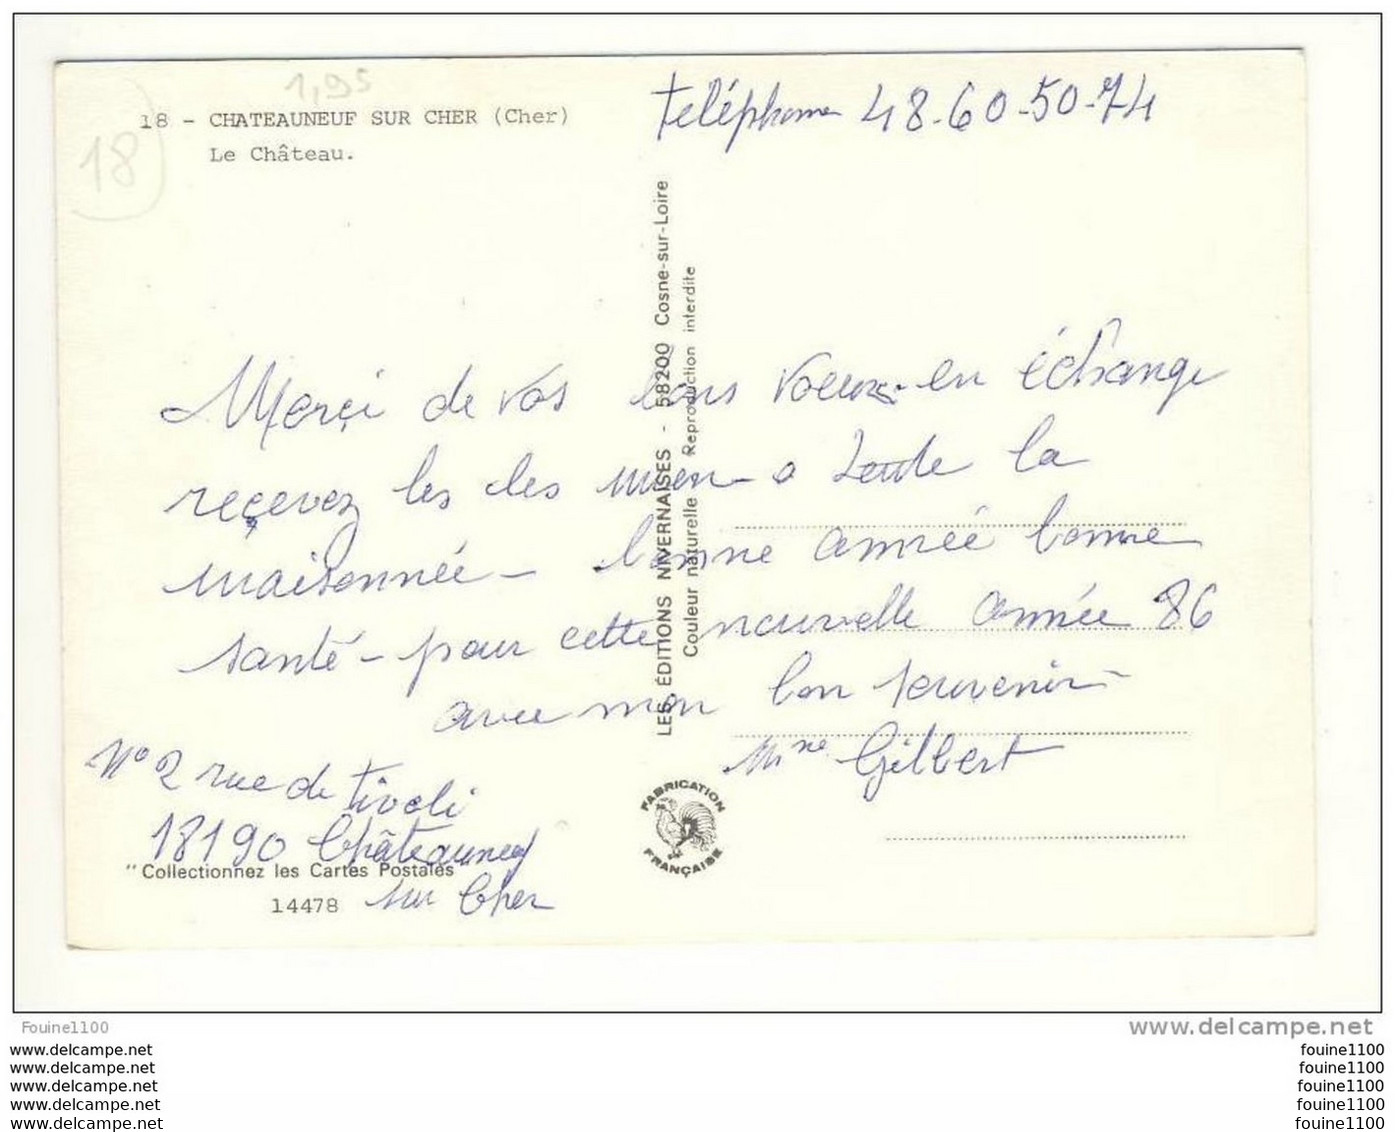 1,95
téléphone 48-60-50-74
18 - CHATEAUNEUF SUR CHER (Cher)
Le Château.
18
Merçi de vos bons voeux - en échange
reçevez les des mien - a toute la
maisonnée - bonne année bonne
santé - pour cette nouvelle année 86
avec mon bon souvenir -
Mme Gilbert
N° 2 rue de Tivoli
18190 Châteauneuf
sur Cher
"Collectionnez les Cartes Postales"
14478
LES ÉDITIONS NIVERNAISES - 58200 Cosne-sur-Loire
Couleur naturelle Reproduction interdite
FABRICATION
FRANÇAISE
Fouine1100
www.delcampe.net
www.delcampe.net
www.delcampe.net
www.delcampe.net
www.delcampe.net
www.delcampe.net
fouine1100
fouine1100
fouine1100
fouine1100
fouine1100